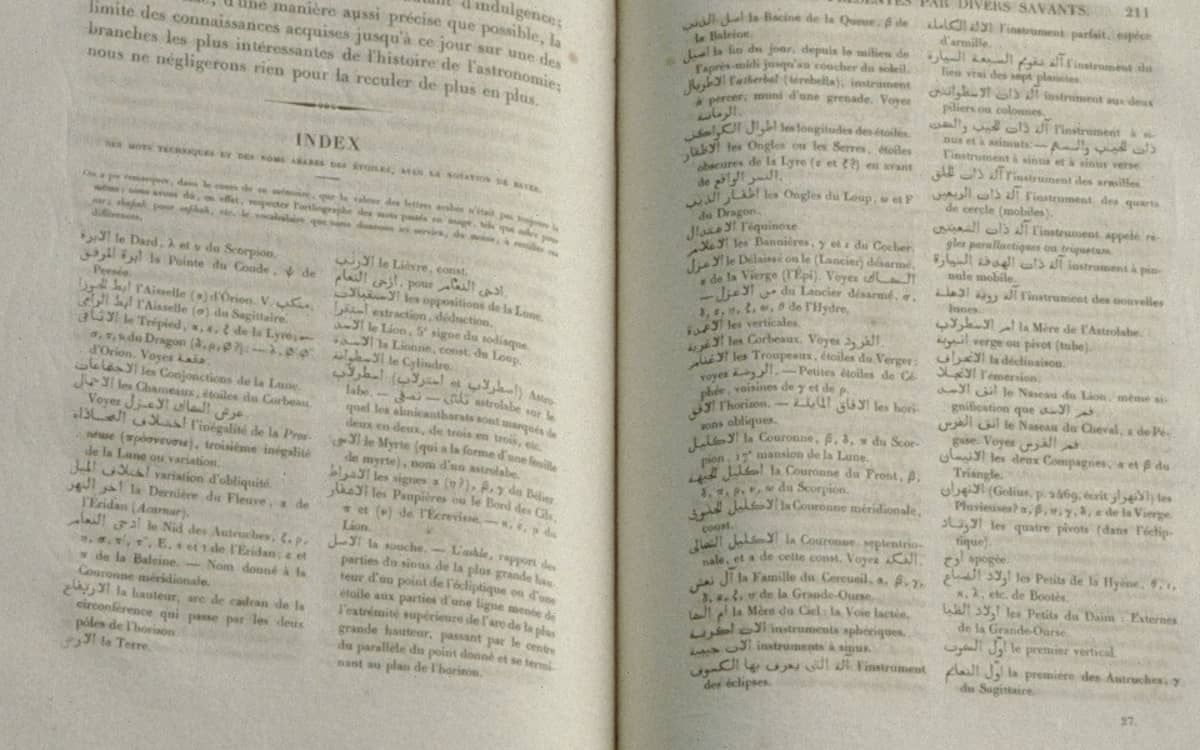 d'indulgence;
d'une manière aussi précise que possible, la
limite des connaissances acquises jusqu'à ce jour sur une des
branches les plus intéressantes de l'histoire de l'astronomie;
nous ne négligerons rien pour la reculer de plus en plus.
INDEX
DES MOTS TECHNIQUES ET DES NOMS ARABES DES ÉTOILES, AVEC LA NOTATION DE BAYER.
On a pu remarquer, dans le cours de ce mémoire, que la valeur des lettres arabes n'était pas toujours la
même; nous avons dû, en effet, respecter l'orthographe des mots passés en usage, tels que
pour etc. le vocabulaire que nous donnons ici servira, du moins, à rectifier ces
différences.
الابرة le Dard, λ et υ du Scorpion.
ابرة المرفق la Pointe du Coude, ψ de
Persée.
ابط الجوزا l'Aisselle (α) d'Orion. V. منكب.
ابط الرامى l'Aisselle (σ) du Sagittaire.
الاثافى le Trépied, α, ε, ζ de la Lyre; —
σ, τ, υ du Dragon
d'Orion. Voyez هقعة.
الاجتماعات les Conjonctions de la Lune.
الاجمال les Chameaux, étoiles du Corbeau.
Voyez عرش السماك الاعزل.
اختلاف المحاذاة l'inégalité de la Pros-
neuse (πρόσνευσις), troisième inégalité
de la Lune ou variation.
اختلاف الميل variation d'obliquité.
اخر النهر la Dernière du Fleuve, α de
l'Éridan (Acarnar).
ادحى النعام le Nid des Autruches, ζ, ρ,
et τ de l'Éridan; ε et
π de la Baleine. — Nom donné à la
Couronne méridionale.
الارتفاع la hauteur, arc de cadran de la
circonférence qui passe par les deux
pôles de l'horizon.
الارض la Terre.
الارنب le Lièvre, const.
ازحى النعام, pour ادحى النعام.
الاستقبالات les oppositions de la Lune.
استقرا extraction, déduction.
الاسد le Lion, 5e signe du zodiaque.
الاسدة la Lionne, const. du Loup.
الاسطوانة le Cylindre.
اسطرلاب (اصطرلاب et استرلاب) Astro-
labe. — نصفى — ثلثى astrolabe sur le
quel les almicantharats sont marqués de
deux en deux, de trois en trois, etc.
الاس le Myrte (qui a la forme d'une feuille
de myrte), nom d'un astrolabe.
الاشراط les signes α (η?), β, γ du Bélier
الاشفار les Paupières ou le Bord des Cils,
π et (ν) de l'Écrevisse. — κ, ε, μ du
Lion.
الاصل la souche. — L'ashle, rapport des
parties du sinus de la plus grande hau-
teur d'un point de l'écliptique ou d'une
étoile aux parties d'une ligne menée de
l'extrémité supérieure de l'arc de la plus
grande hauteur, passant par le centre
du parallèle du point donné et se termi-
nant au plan de l'horizon.
PRÉSENTÉS PAR DIVERS SAVANTS. 211
اصل الذنب la Racine de la Queue, β de
la Baleine.
اصيل la fin du jour, depuis le milieu de
l'après-midi jusqu'au coucher du soleil.
الاطربال l'atherbal (terebella), instrument
à percer, muni d'une grenade. Voyez
الرمانة.
اطوال الكواكب les longitudes des étoiles.
الاظفار les Ongles ou les Serres, étoiles
obscures de la Lyre (ε et ζ?) en avant
de النسر الواقع.
اظفار الذيب les Ongles du Loup, ω et F
du Dragon.
الاعتدال l'équinoxe.
الاعلام les Bannières, γ et ι du Cocher.
الاعزل le Délaissé ou le (Lancier) désarmé,
α de la Vierge (l'Épi). Voyez السماك
— من الاعزل du Lancier désarmé, σ,
δ, ε, η, ζ, ω, θ de l'Hydre.
الاعمدة les verticales.
الاغربة les Corbeaux. Voyez القرود.
الاغنام les Troupeaux, étoiles du Verger;
voyez الروضة. — Petites étoiles de Cé-
phée, voisines de γ et de ρ.
الافق l'horizon. — الافاق المايلة les hori-
zons obliques.
الاكليل la Couronne, β, δ, π du Scor-
pion, 17e mansion de la Lune.
اكليل الجبهة la Couronne du Front, β,
δ, π, ρ, ν, ω du Scorpion.
الاكليل الجنوبى la Couronne méridionale,
const.
الاكليل الشمالى la Couronne septentrio-
nale, et α de cette const. Voyez الفكة.
آل نعش la Famille du Cercueil, α, β, γ,
δ, ε, ζ, η de la Grande-Ourse.
ام السما la Mère du Ciel; la Voie lactée.
الات اكرية instruments sphériques.
الات جيبية instruments à sinus.
آلة التى يعرف بها الكسوف l'instrument
des éclipses.
الالة الكاملة l'instrument parfait, espèce
d'armille.
آلة تقويم السبعة السيارة l'instrument du
lieu vrai des sept planètes.
آلة ذات الاسطوانتين instrument aux deux
piliers ou colonnes.
آلة ذات الجيب والسمت l'instrument à si-
nus et à azimuts; — ذات الجيب والسهم
l'instrument à sinus et à sinus verse.
آلة ذات الحلق l'instrument des armilles.
آلة ذات الربعين l'instrument des quarts
de cercle (mobiles).
آلة ذات الشعبتين l'instrument appelé rè-
gles parallactiques ou triquetum.
آلة ذات الهدفة السيارة instrument à pin-
nule mobile.
آلة روية الاهلة l'instrument des nouvelles
lunes.
ام الاسطرلاب la Mère de l'Astrolabe.
انبوبة verge ou pivot (tube).
الانحراف la déclinaison.
الانجلا l'émersion.
انف الاسد le Naseau du Lion, même si-
gnification que فم الاسد.
انف الفرس le Naseau du Cheval, ε de Pé-
gase. Voyez فم الفرس.
الانيسان les deux Compagnes, α et β du
Triangle.
الانهران (Golius, p. 2469, écrit الانهرار) les
Pluvieuses? α, β, η, γ, δ, ε de la Vierge.
الاوتاد les quatre pivots (dans l'éclip-
tique).
اوج apogée.
اولاد الضباع les Petits de la Hyène, θ, ι,
κ, λ, etc. de Bootès.
اولاد الظبا les Petits du Daim: Externes
de la Grande-Ourse.
اول السموت le premier vertical.
اول النعام la première des Autruches, γ
du Sagittaire.
27.